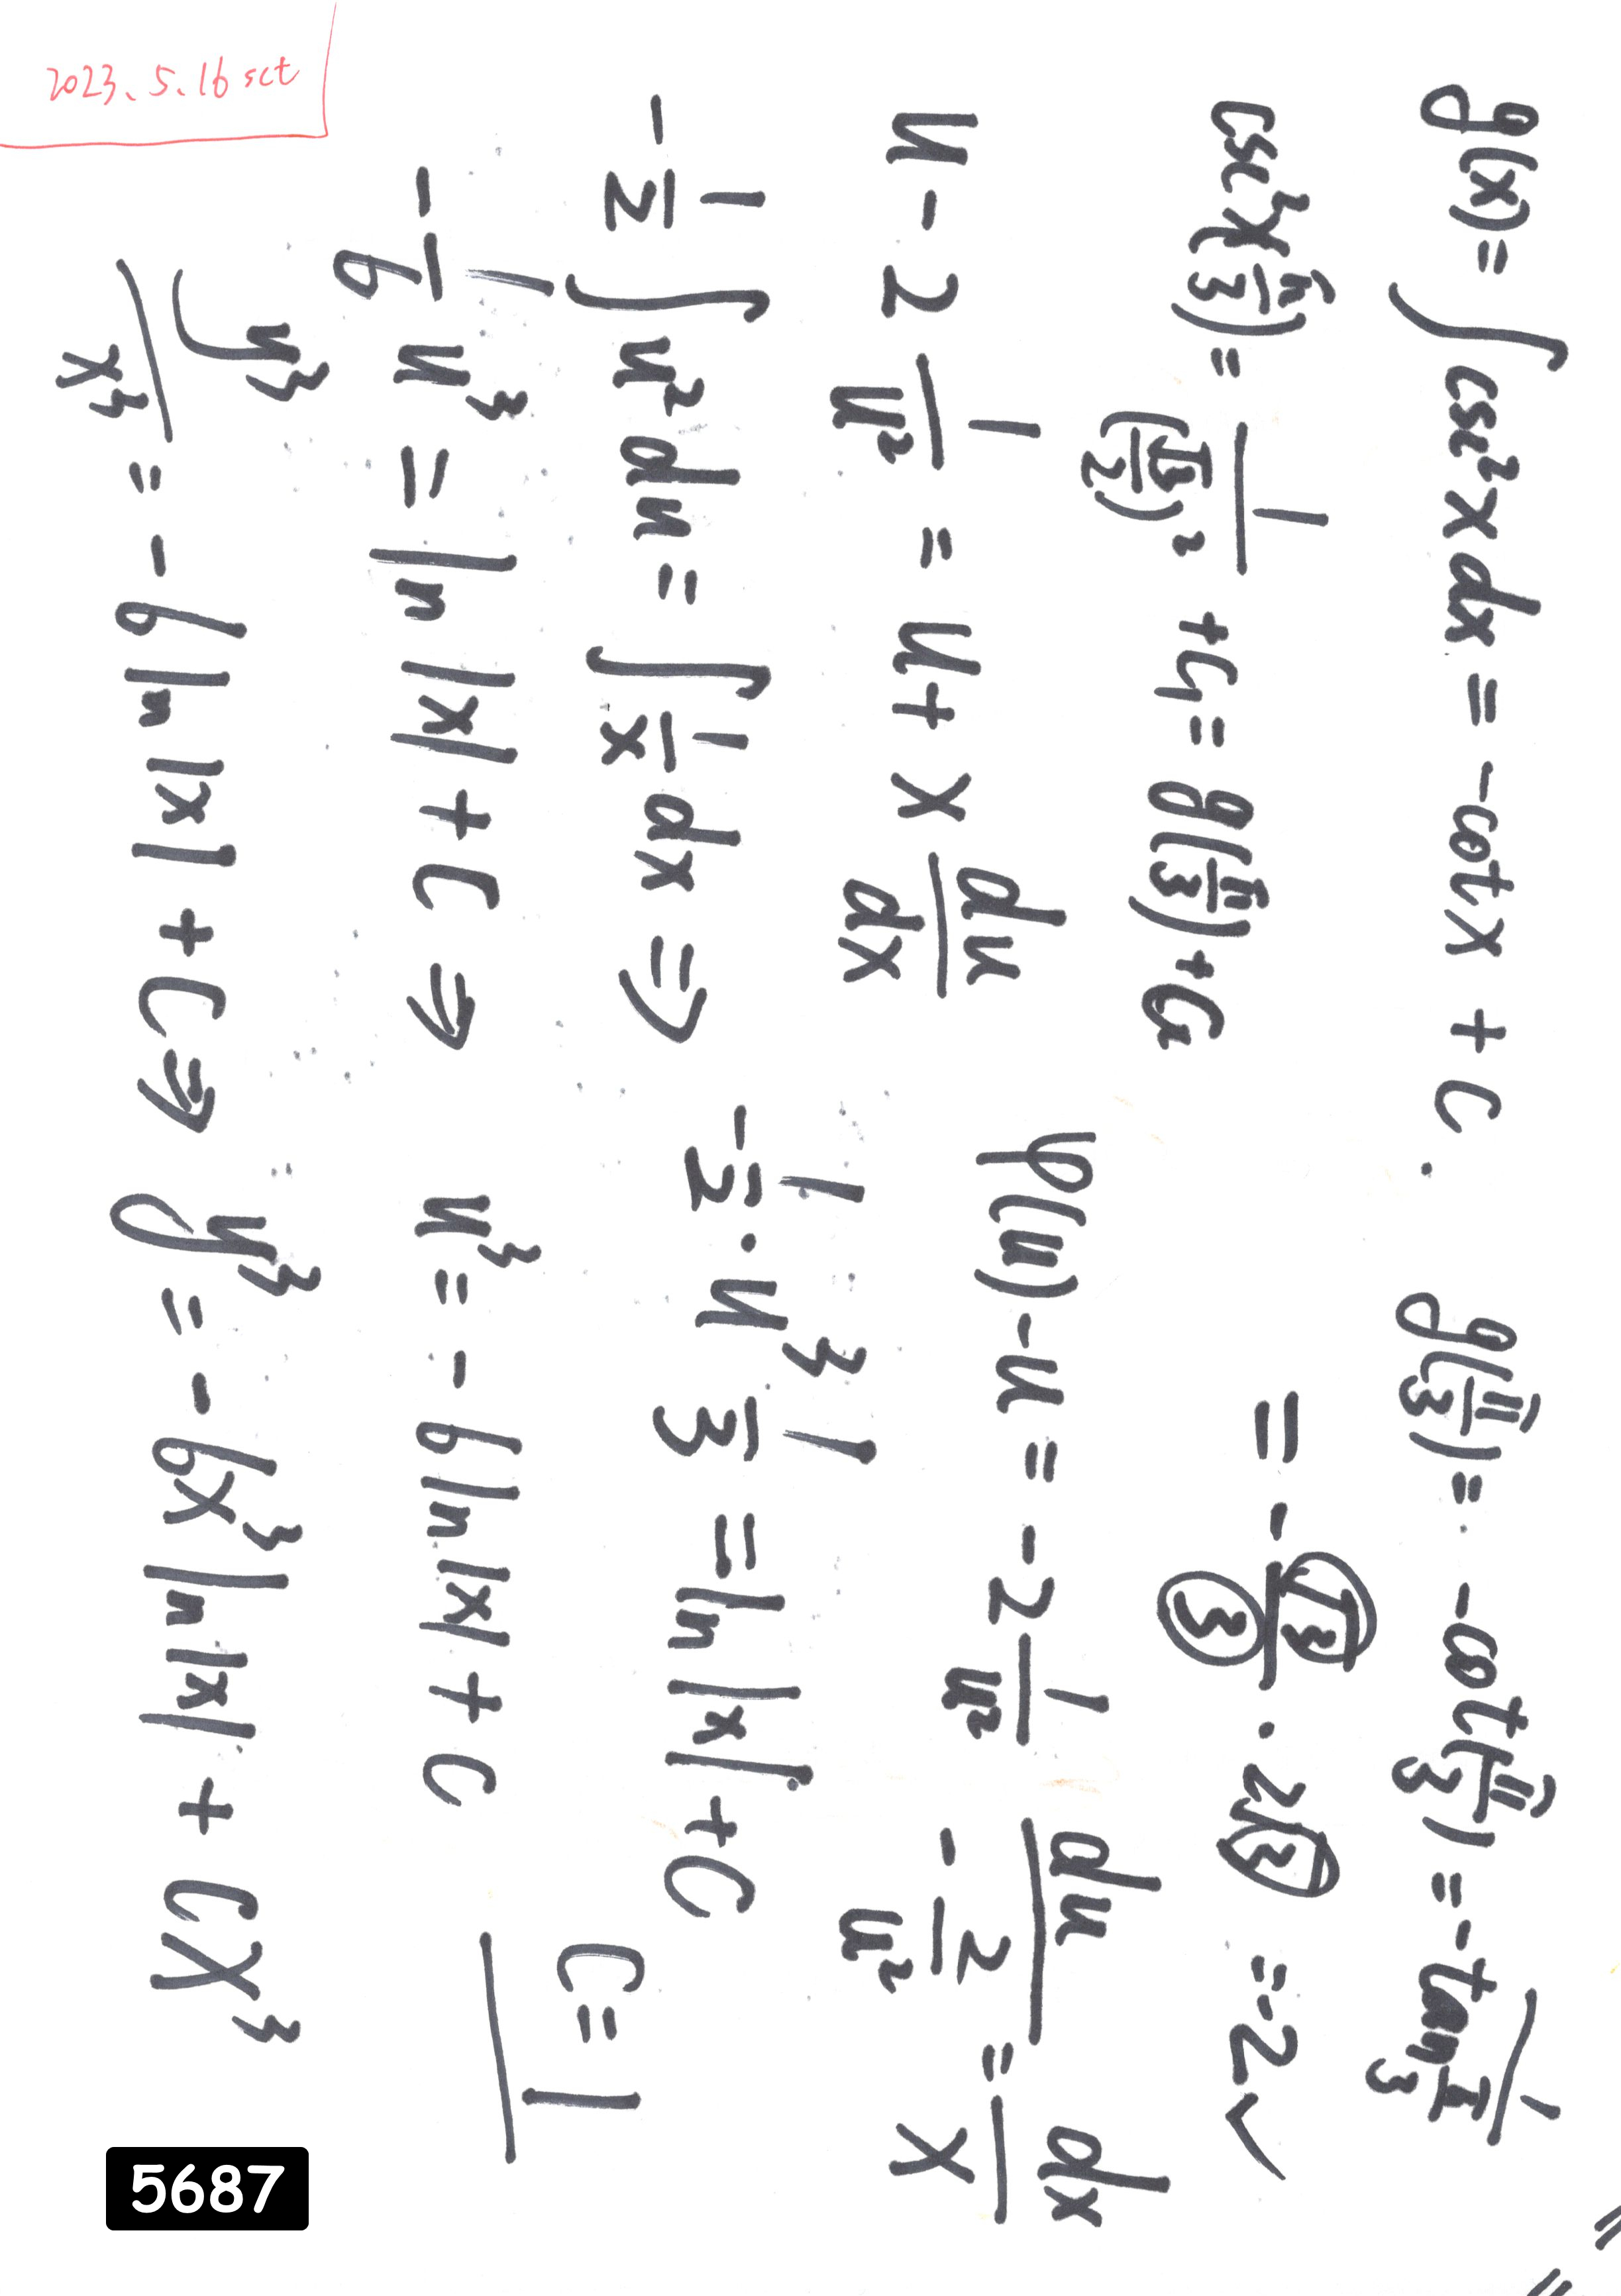 2023.5.16 sct
g(x) = ∫ csc²x dx = -cot x + C.
g(π/3) = -cot(π/3) = -1/tan π/3
csc²x(π/3) = 1/(√3/2)² + C₁ = g(π/3) + C₁
= -√3/3 · 2√3 = -2 ✓
u - 2 1/u² = u + x du/dx
φ(u) - u = -2 1/u²
du/-2/u² = dx/x
-1/2 ∫ u² du = ∫ 1/x dx ⇒
-1/2 · u³ 1/3 = ln|x| + C
-1/6 u³ = ln|x| + C ⇒
u³ = -6 ln|x| + C
C = 1
y³/x³ = -6 ln|x| + C ⇒
y³ = -6x³ ln|x| + Cx³
5687